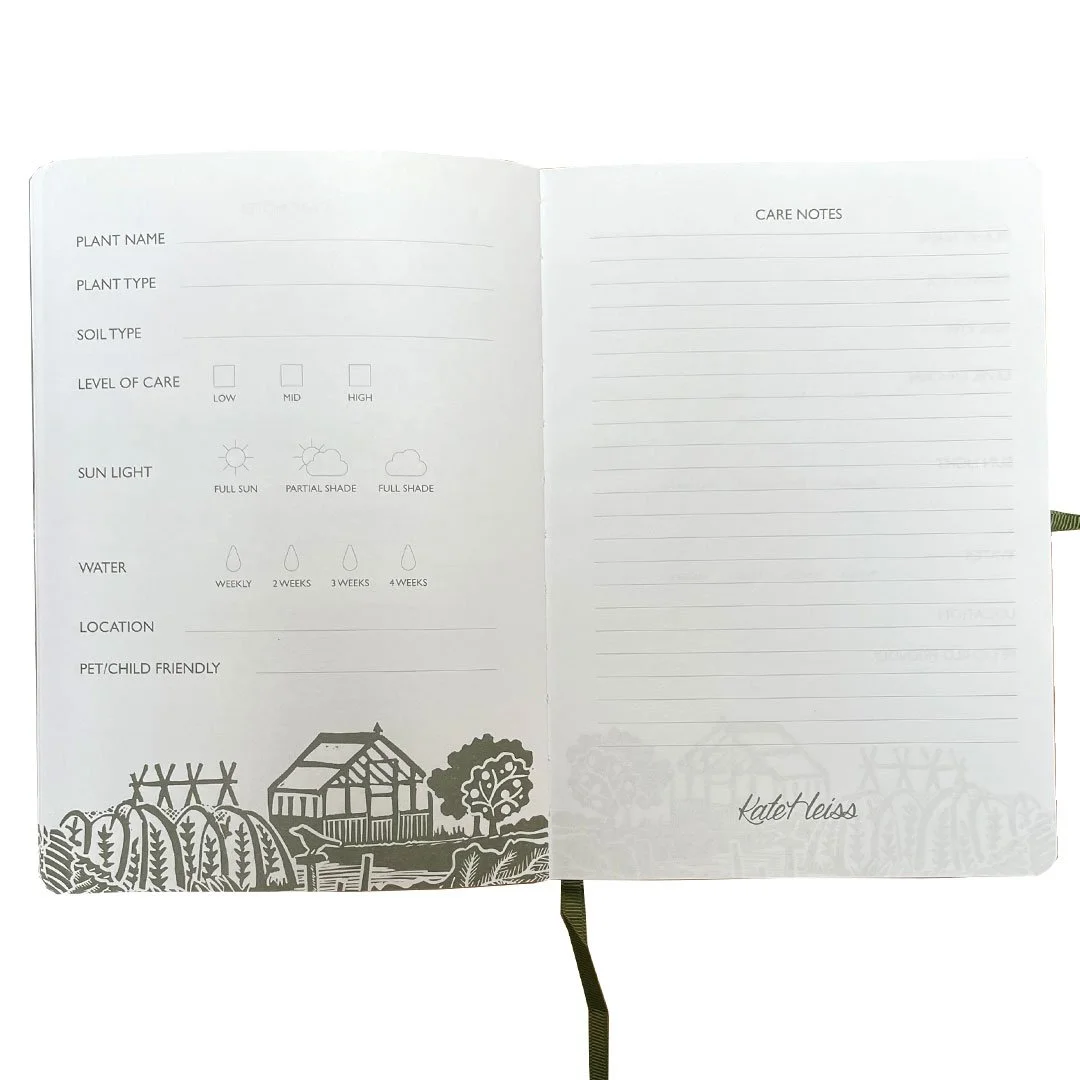 PLANT NAME
PLANT TYPE
SOIL TYPE
LEVEL OF CARE
LOW MID HIGH
SUN LIGHT
FULL SUN PARTIAL SHADE FULL SHADE
WATER
WEEKLY 2 WEEKS 3 WEEKS 4 WEEKS
LOCATION
PET/CHILD FRIENDLY
CARE NOTES
Kate Heiss